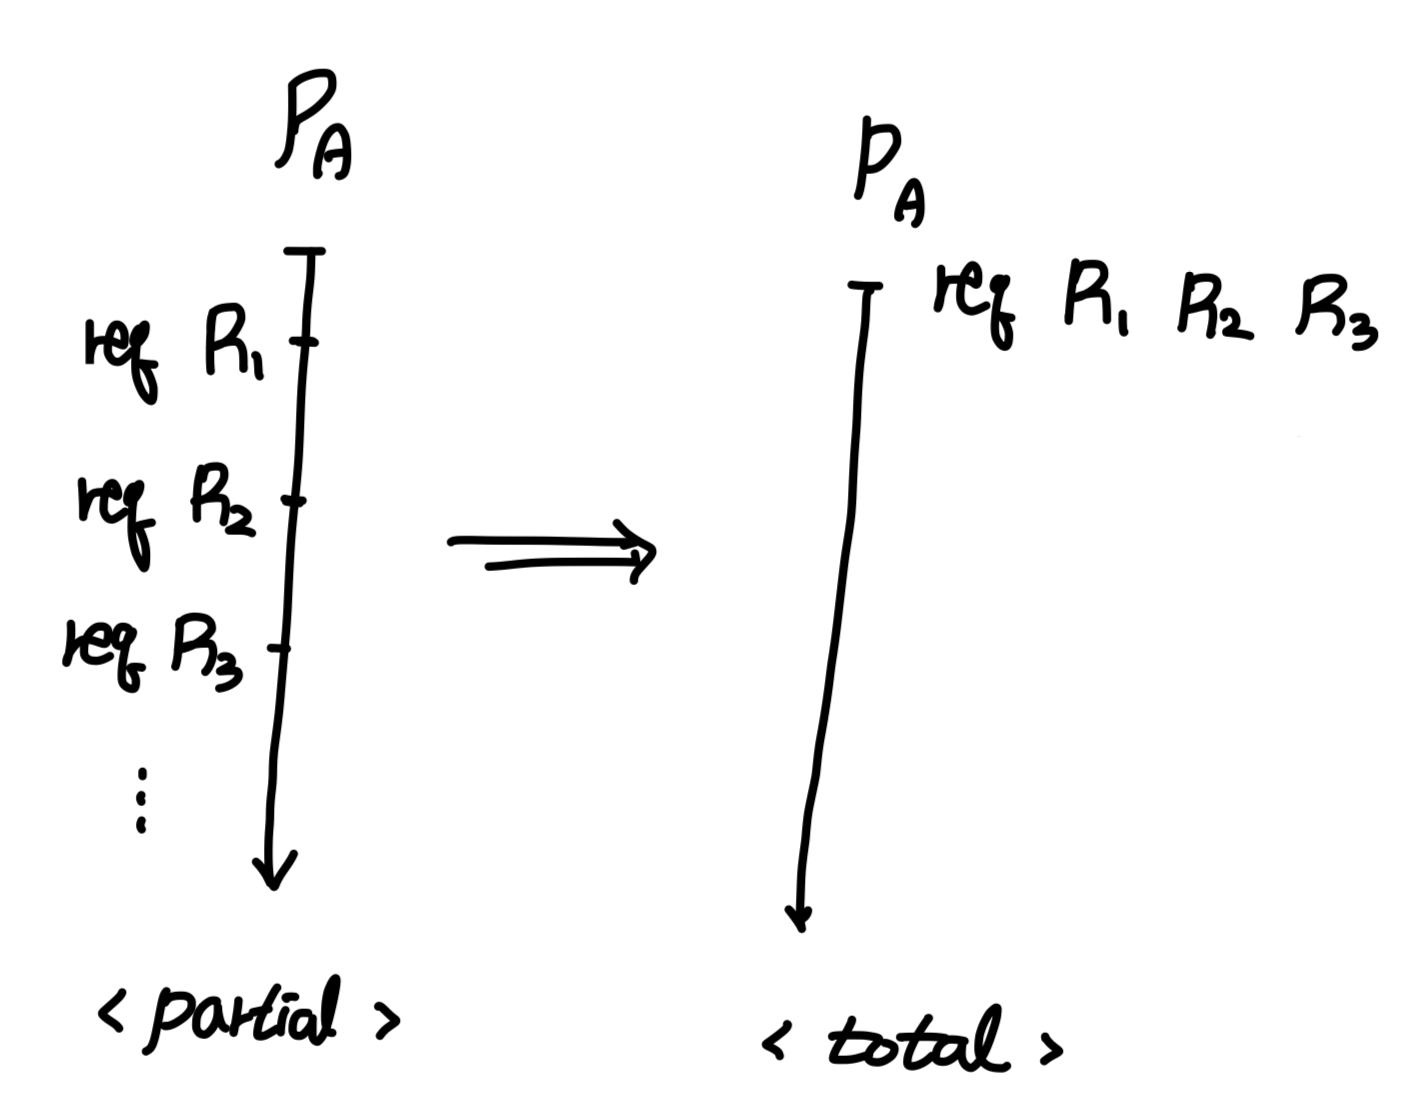 P_A
req R₁
req R₂
req R₃
⋮
< partial >
P_A
req R₁ R₂ R₃
< total >